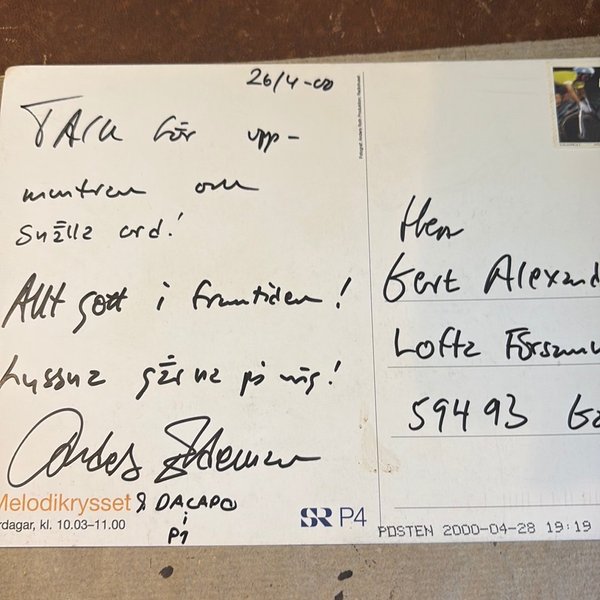 26/4-00
TACK för upp-
muntran och
snälla ord!
Allt gott i framtiden!
Lyssna gärna på mig!
Anders Eldeman
Melodikrysset & DACAPO
rdagar, kl. 10.03–11.00
i
P1
SR P4
Fotograf: Anders Roth Produktion:
Herr
Gert Alexand
Lofta Församl
594 93 Ga
POSTEN 2000-04-28 19:19